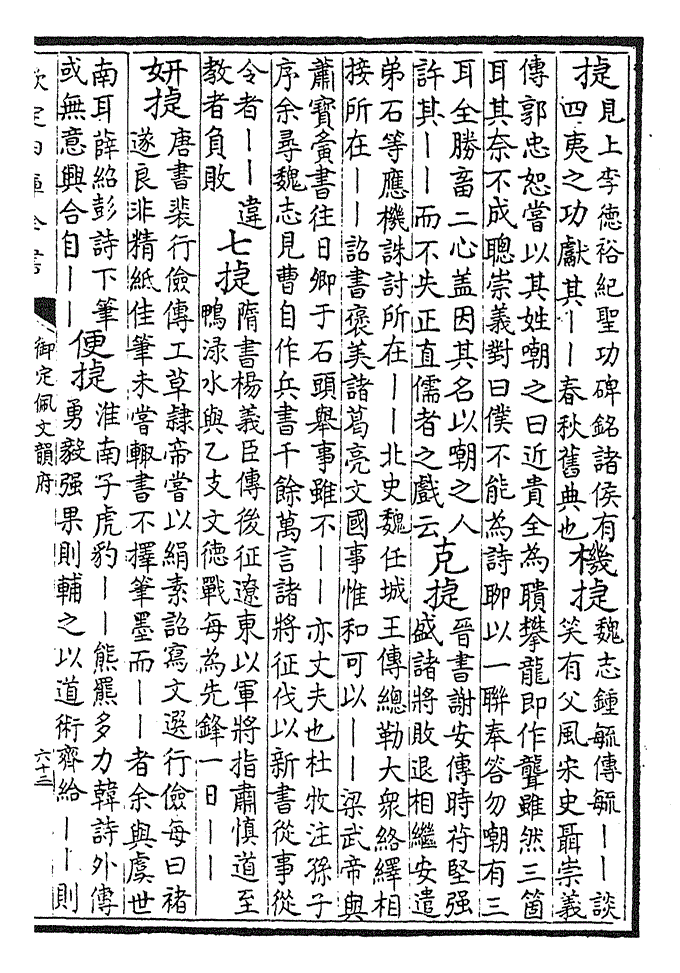 捷
見上李德裕紀聖功碑銘諸侯有
四夷之功獻其——春秋舊典也
機捷
魏志鍾毓傳毓——談
笑有父風宋史聶崇義
傳郭忠恕嘗以其姓嘲之曰近貴全為聵攀龍即作聾雖然三箇
耳其奈不成聰崇義對曰僕不能為詩聊以一聯奉答勿嘲有三
耳全勝畜二心盖因其名以嘲之人
許其——而不失正直儒者之戲云
克捷
晉書謝安傳時苻堅强
盛諸將敗退相繼安遣
弟石等應機誅討所在——北史魏任城王傳總勒大衆絡繹相
接所在——詔書褒美諸葛亮文國事惟和可以——梁武帝與
蕭寶夤書往日卿于石頭舉事雖不——亦丈夫也杜牧注孫子
序余尋魏志見曹自作兵書千餘萬言諸將征伐以新書從事從
令者——違
教者負敗
七捷
隋書楊義臣傳後征遼東以軍將指肅慎道至
鴨渌水與乙支文德戰每為先鋒一日——
妍捷
唐書裴行儉傳工草隷帝嘗以絹素詔寫文選行儉每曰褚
遂良非精紙佳筆未嘗輙書不擇筆墨而——者余與虞世
南耳薛紹彭詩下筆
或無意興合自——
便捷
淮南子虎豹——熊羆多力韓詩外傳
勇毅强果則輔之以道術齊給——則
欽定四庫全書
御定佩文韻府
六十三